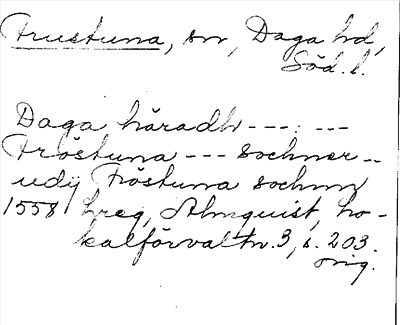 Frustuna, sn, Daga hd,
Söd. l.
Daga häradh ---:---
Fröstuna --- sochner --
udij Fröstuna sochnn
1558 hreg, Almquist, lo-
kalförvaltn. 3, s. 203.
orig.